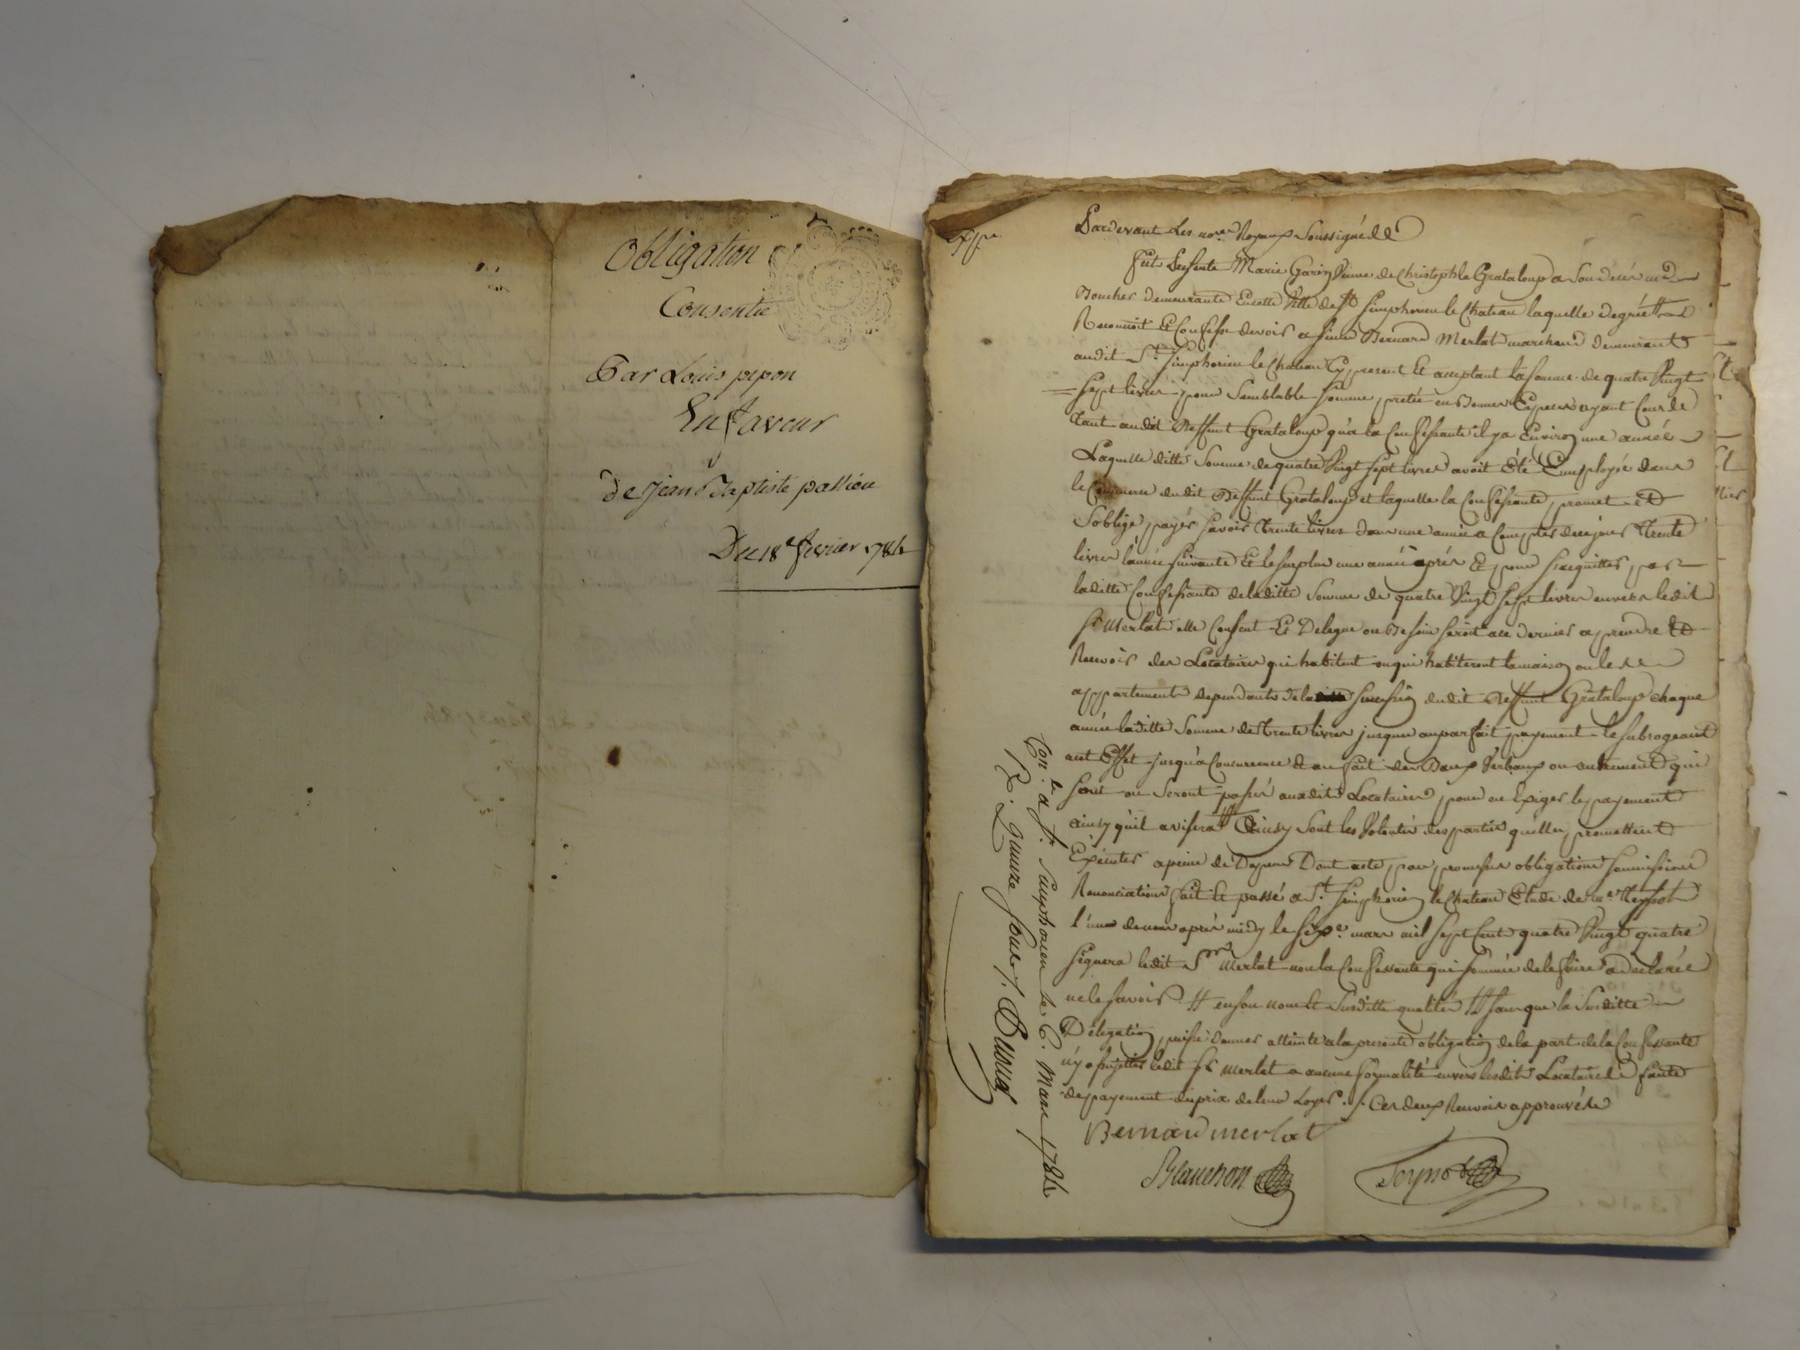 Obligation
Consentie
Par Louis pipon
En faveur
de jean Baptiste passieu
Du 18e fevrier 1784
Expe.
Pardevant Les nores Royaux Soussignés
fut presente Marie Garin Veuve de Christophle Grataloup a son decès md
Boucher demeurante en cette Ville de St Simphorien le Chateau laquelle degré
Reconnoit Et Confesse devoir a sieur Bernard Merlat marchand demeurant
audit St Simphorien le Chateau Cy present Et acceptant La somme de quatre Vingt
sept livres pour Semblable somme pretée en Bonnes Especes ayant Cour de
tant audit deffunt Grataloup qu'a la Confessante il y a Environ une année
Laquelle ditte Somme de quatre Vingt sept livres avoit Eté Employée dans
le Commerce dudit deffunt Grataloup et laquelle la Confessante promet Et
S'oblige payer savoir trente livres dans une année a Compter de ce jour trente
livres l'année suivante Et le surplus une année après Et pour s'acquitter par
laditte Confessante de laditte Somme de quatre Vingt sept livres envers ledit
sr Merlat elle Consent Et Delegue ou Besoin seroit a ce dernier a prendre Et
Recevoir des Locataires qui habitent ou qui habiteront la maison ou les
appartements dependants de la succession dudit deffunt Grataloup chaque
année laditte Somme de trente livres jusques au parfait payement le subrogeant
a cet Effet jusqu'a Concurrence Et au fait des Baux Verbaux ou autrement qui
sont ou seront passés auxdits Locataires pour en Exiger le payement
ainsy qu'il avisera Ainsy sont les Volontés des parties qu'elles promettent
Executer a peine de Depens Dont acte par promesses obligations soumissions
Renonciations fait Et passé a St. Simphorien le Chateau Etude de Me
l'un de nous après midy le six mars mil sept Cent quatre Vingt quatre
signera ledit Sr Merlat non la Confessante qui sommée de le faire a declaré
ne le savoir # en son nom Et susditte qualité # sans que la Susditte
Délegation puisse donner atteinte a la presente obligation de la part de la Confessante
n'y assujettir ledit sr Merlat a aucune formalité envers lesdits Locataires faute
de payement du prix de leur Loyer ./. Ces deux Renvois approuvés
Bernard merlat
Blanchon
Con. le a St. Simphorien le 6. Mars 1784
R. quinze sous ./.